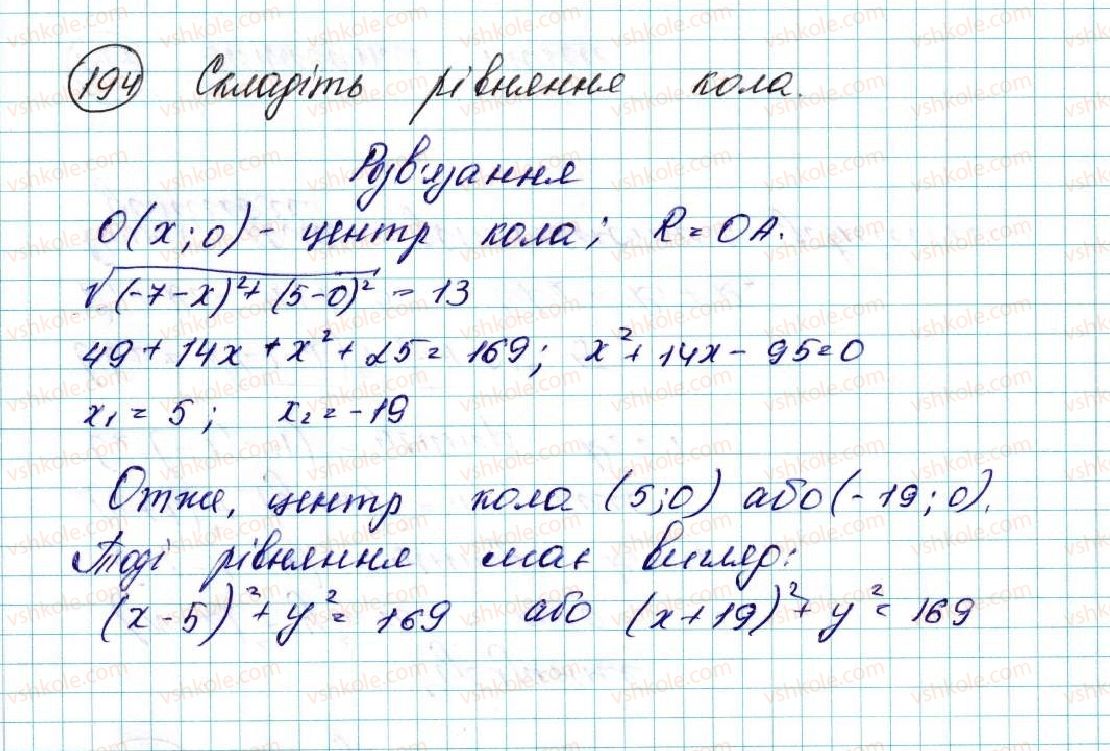 194 Складіть рівняння кола.
Розв'язання
O(x;0) - центр кола; R = OA.
√((-7-x)²+(5-0)²) = 13
49 + 14x + x² + 25 = 169; x² + 14x - 95 = 0
x₁ = 5; x₂ = -19
Отже, центр кола (5;0) або (-19;0).
Тоді рівняння має вигляд:
(x-5)² + y² = 169 або (x+19)² + y² = 169